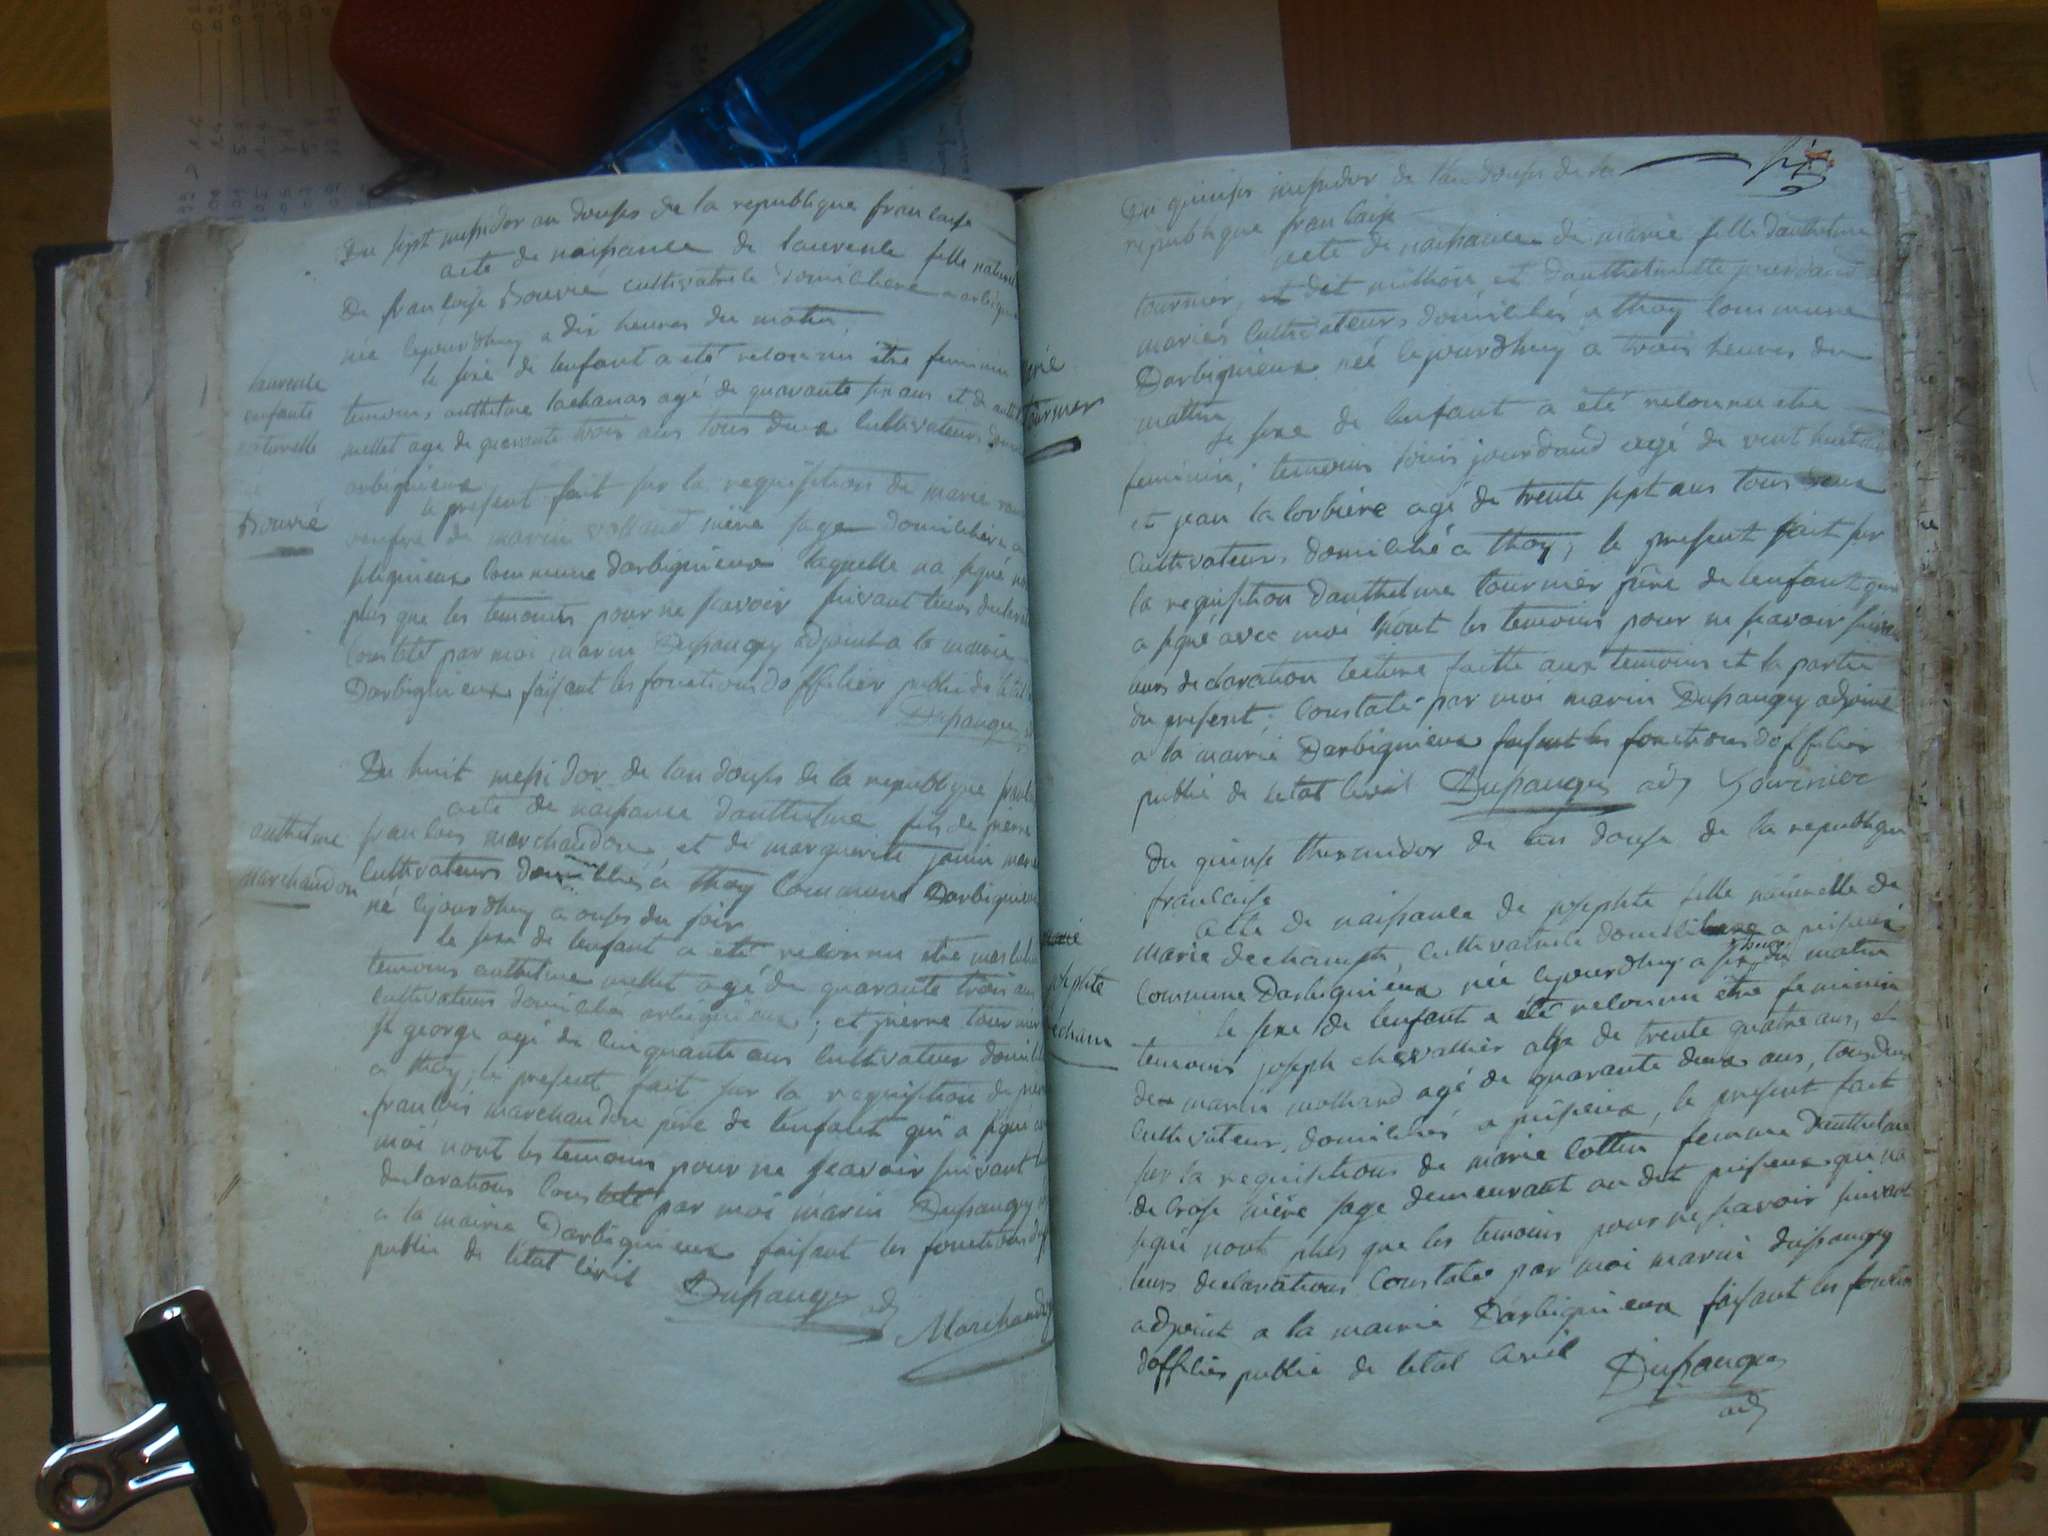 Du sept messidor an douse de la republique francaise
acte de naissance de laurence fille naturel
De françoise Bouvié cultivatrice domiciliere a arbignieu
née cejourdhuy a dix heures du matin
le sexe de lenfant a eté reconnu être feminin
temoins anthelme lachanas agé de quarante six ans et de anthel
mellet age de quarante trois ans tous deux cultivateurs
arbignieux
le present fait sur la requisition de marie
veufve de marin volland mère sage domiciliere a
peguieux commune darbignieux laquelle na signé non
plus que les temoins pour ne scavoir suivant leurs declarat
Constaté par moi marin Dupaugey adjoint a la mairie
Darbignieux faisant les fonctions dofficier public de letat
Dupaugey
laurence
enfante
naturelle
Bouvié
Du huit messidor de lan douse de la republique
acte de naissance danthelme fils de pierre
francois marchandon et de marguerite janin
cultivateurs domiciliés a thoy commune Darbignieux
né cejourdhuy a onse du soir
le sexe de lenfant a eté reconnu etre masculin
temoins anthelme mellet agé de quarante trois ans
cultivateur domicilié arbignieux ; et pierre tournier
st george agé de cinquante ans cultivateur domicilié
a thoy, le present fait sur la requisition de pierre
francois marchandon père de lenfant qui a signé avec
moi nont les temoins pour ne scavoir suivant leurs
declarations constaté par moi marin Dupaugey
a la mairie Darbignieux faisant les fonctions
public de letat civil
Dupaugey adj
Marchandon
anthelme
marchandon
Du quinse messidor de lan douse de la
republique francaise
acte de naissance de marie fille danthelme
tournier, et dit et danthelmette jourdand
mariés cultivateurs domiciliés a thoy commune
Darbignieux née cejourdhuy a trois heures du
matin
le sexe de lenfant a eté reconnu etre
feminin, temoins louis jourdand agé de vint huit ans
et jean la corbière agé de trente sept ans tous deux
cultivateurs domicilié a thoy, le present fait sur
la requisition danthelme tournier père de lenfant qui
a signé avec moi nont les temoins pour ne scavoir suivant
leurs declaration lecture faitte aux temoins et la partie
du present. Constaté par moi marin Dupaugey adjoint
a la mairie Darbignieux faisant les fonctions dofficier
public de letat civil Dupaugey adj Tournier
tournier
Du quinse thermidor de lan douse de la republique
francaise
acte de naissance de josephte fille naturelle de
marie dechamps, cultivatrice domiciliere a peisieu
commune Darbignieux née cejourdhuy a six heures du matin
le sexe de lenfant a été reconnu être feminin
temoins joseph chevallier agé de trente quatre ans, et
de marin mothand agé de quarante deux ans, tous deux
cultivateurs domiciliés a peisieux, le present fait
sur la requisitions de marie cottin femme danthelme
de crose mère sage demeurant au dit peisieux qui na
signé nont plus que les temoins pour ne scavoir suivant
leurs declarations Constaté par moi marin dupaugey
adjoint a la mairie Darbignieux faisant les fonctions
dofficier public de letat civil
Dupaugey
adj